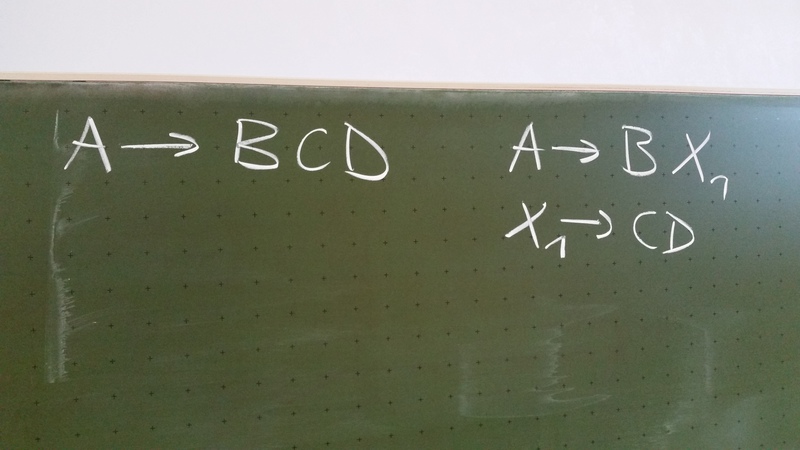 A → BCD
A → BX₁
X₁ → CD